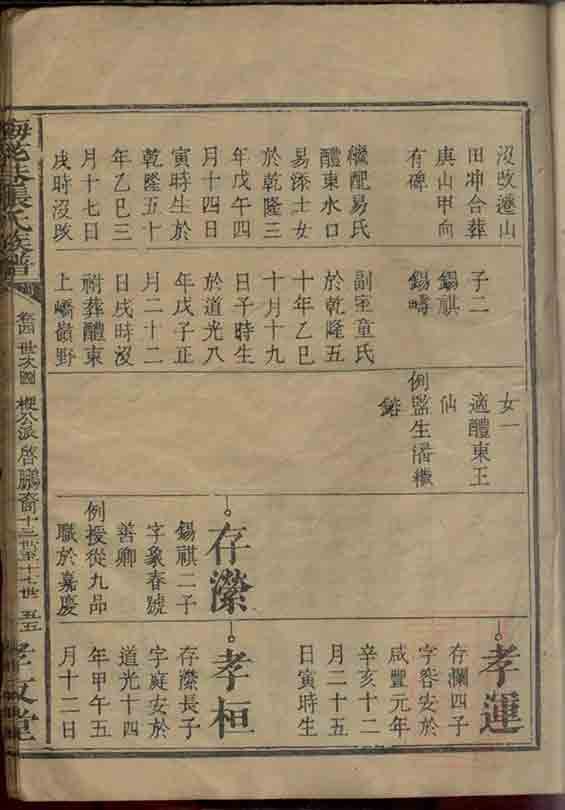 沒改遷山
田冲合葬
庚山甲向
有碑
繼配易氏
醴東水口
易添士女
於乾隆三
年戊午四
月十四日
寅時生於
乾隆五十
年乙巳三
月十七日
戌時沒改
子二
錫祺
錫疇
副室童氏
於乾隆五
十年乙巳
十月十九
日子時生
於道光八
年戊子正
月二十二
日戌時沒
祔葬醴東
上嶠嶺野
女一
適醴東王
仙
例監生潘繼
存瀠
錫祺二子
字象春號
善卿
例授從九品
職於嘉慶
孝運
存瀾四子
字容安於
咸豐元年
辛亥十二
月二十五
日寅時生
孝桓
存瀠長子
字庭安於
道光十四
年甲午五
月十二日
張氏族譜
世次圖
公派
啓鵬裔
十三世至十七世
五五
孝友堂